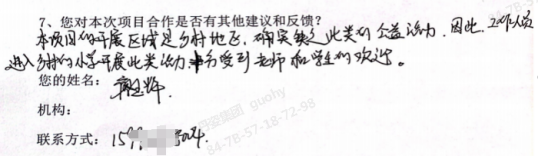 7、您对本次项目合作是否有其他建议和反馈?
本项目的开展区域是乡村地区,确实缺乏此类的公益活动,因此,工作人员
进入乡村小学开展此类活动,十分受到老师和学生的欢迎。
您的姓名:
机构:
联系方式:
guohy
84-7B-57-18-72-98